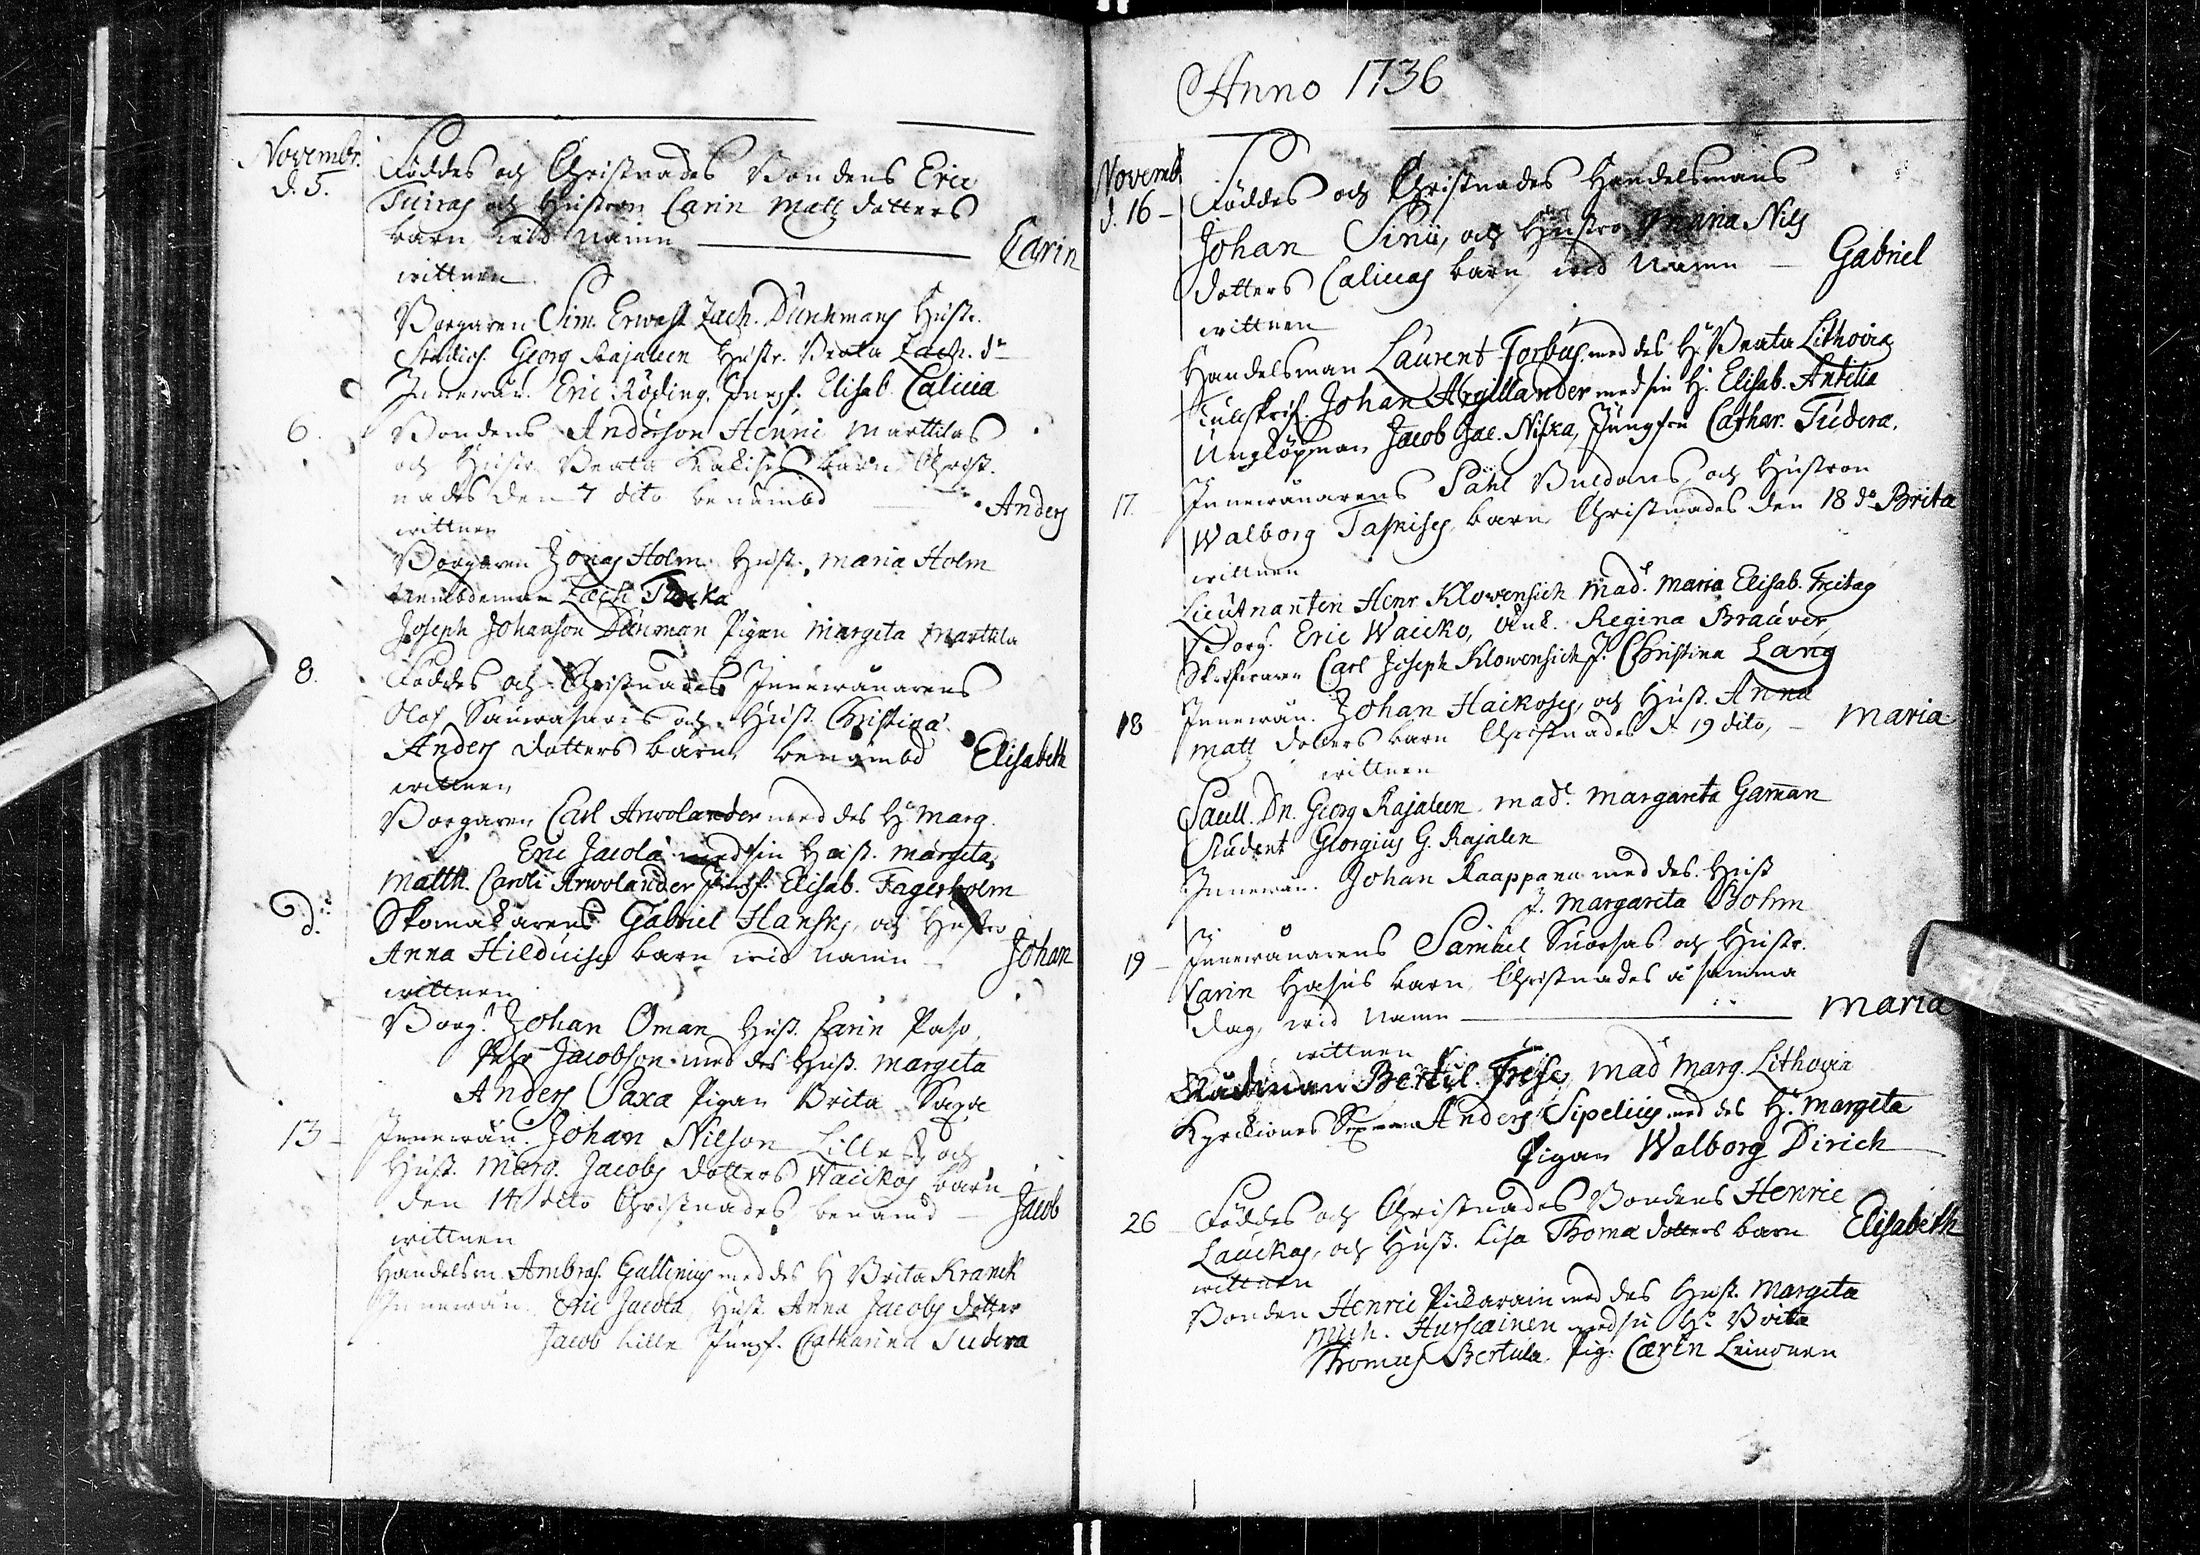 Novembr. d. 5. Föddes och Christnades Bondens Eric
Tuiras och Hustron Carin Matts dotters
barn wid namn — Carin
wittnen
Borgaren Sim. Erwast Zach. Dunckmans Hustr.
Studios. Georg Rajalen Hustr. Beata Zach. dr
Innewån. Eric Röding, Jungf. Elisab. Calicia
6. Bondens Anderson Henric Marttilas
och Hustr. Beata barn Christ-
nades den 7 dito benämbd — Anders
wittnen
Borgaren Jonas Holm Hust. Maria Holm
Nembdeman Zach
Joseph Johanson Dunman Pigan Margeta Marttila
8. Föddes och Christnades Innewånarens
Olof och Hust. Christina
Anders dotters barn benämbd Elisabeth
wittnen
Borgaren Carl Arwolander med des H. Marg.
Eric Jacola med sin Hust. Margeta,
Matth. Caroli Arwolander Jungf. Elisab. Fagerholm
d:o Skomakarens Gabriel Hansks, och Hustro
Anna barn wid namn — Johan
wittnen
Borg. Johan Öman Hust. Carin Paso
Pehr Jacobson med des Hust. Margeta
Anders Saxa Pigan Brita Saxa
13 Innewån. Johan Nilson Lilles, och
Hust. Marg. Jacobs dotters Waickos barn
den 14 dito Christnades benämd — Jacob
wittnen
Handelsm. Ambros. Gallenius med des H Brita Kranck
Innewån. Eric Jacola, Hust. Anna Jacobs dotter
Jacob Lille Jungf. Catharina Tudera
Anno 1736
Novemb. d. 16 Föddes och Christnades Handelsmans
Johan och Hustro Anna Nils
dotters Calicas barn wid namn — Gabriel
wittnen
Handelsman Laurent Forbus med des H. Beata Lithovia
Tullskrif. Johan Argillander med sin H. Elisab. Antilia
Ungkopman Jacob Jac. Niska, Jungfru Cathar. Tudera.
17. Innewånarens Påhl och Hustron
Walborg barn Christnades den 18 d:o Brita
wittnen
Lieutnanten Henr Klowensich Mad. Maria Elisab. Freitag
Borg. Eric Waicko, Enk. Regina Braüver
Carl Joseph Klowensich J. Christina Lang
18 Innewån. Johan Haikoses, och Hust. Anna
Matts dotters barn Christnades d. 19 dito, — Maria
wittnen
Sacell. Dn. Georg Rajaleen Mad. Margareta Gaman
Student Georgius G. Rajalen
Innewån. Johan Kaappana med des Hust
J. Margareta Bohm
19 Innewånarens Samuel Suorsas och Hustr.
Carin barn Christnades å samma
dag, wid namn — Maria
wittnen
Rådman Bertil. Frese, Mad Marg. Lithovia
Anders Sipelius med des H. Margeta
Pigan Walborg Dirich
26 Föddes och Christnades Bondens Henric
Lauckas, och Hust. Lisa Thomæ dotters barn Elisabeth
wittnen
Bonden Henric Pickarain med des Hust. Margeta
Mich. Hurscainen med sin H. Brita
Thomas Bertula. Pig. Carin Leinonen